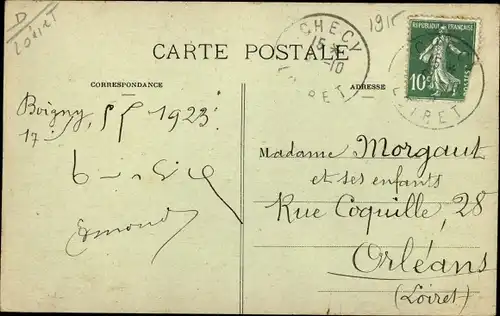 D
Loiret
1915
CARTE POSTALE
CORRESPONDANCE
ADRESSE
CHECY
15 *
10
LOIRET
RÉPUBLIQUE FRANÇAISE
10c
POSTES
LOIRET
Boigny, 1923
17
Edmond
Madame Morgaut
et ses enfants
Rue Coquille, 28
Orléans
(Loiret)